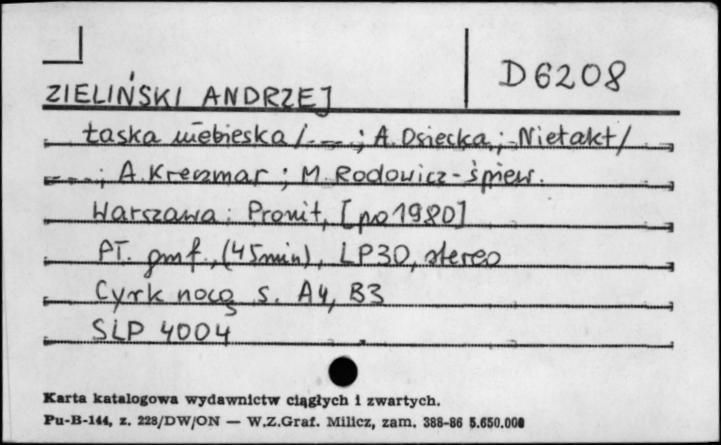 D6208
ZIELIŃSKI ANDRZEJ
Łaska niebieska / --- ; A. Osiecka ; Nietakt /
--- ; A. Kreczmar ; M. Rodowicz - śpiew.
Warszawa : Pronit, [po 1980]
PŁ. gmf., (45min), LP30, stereo
Cyrk nocą s. A4, B3
SLP 4004
Karta katalogowa wydawnictw ciągłych i zwartych.
Pu-B-144, z. 228/DW/ON — W.Z.Graf. Milicz, zam. 388-86 5.650.000